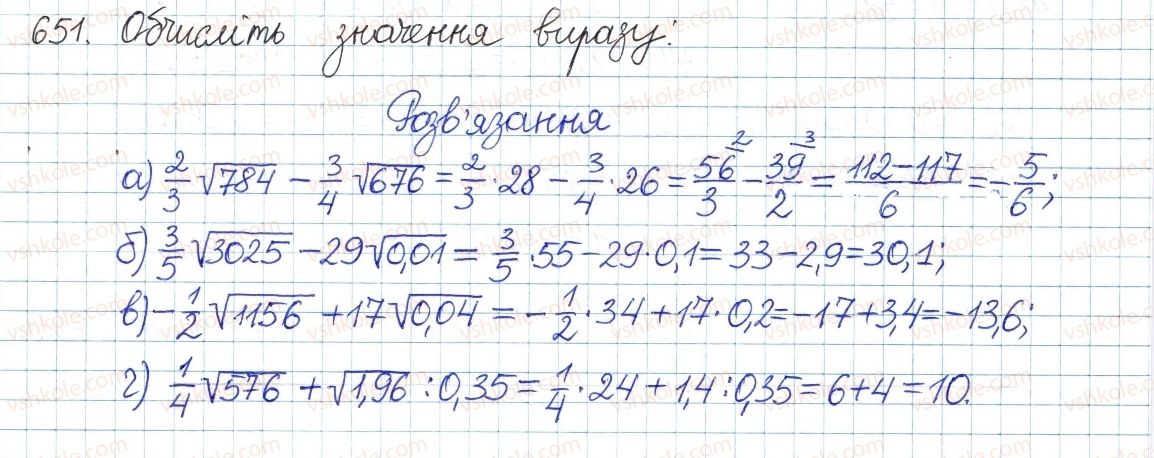 651. Обчисліть значення виразу:
Розв'язання
а) 2/3 √784 − 3/4 √676 = 2/3 · 28 − 3/4 · 26 = 56/3 (2 − 39/2 (3 = (112−117)/6 = −5/6;
б) 3/5 √3025 − 29√0,01 = 3/5 · 55 − 29 · 0,1 = 33 − 2,9 = 30,1;
в) −1/2 √1156 + 17√0,04 = −1/2 · 34 + 17 · 0,2 = −17 + 3,4 = −13,6;
г) 1/4 √576 + √1,96 : 0,35 = 1/4 · 24 + 1,4 : 0,35 = 6 + 4 = 10.